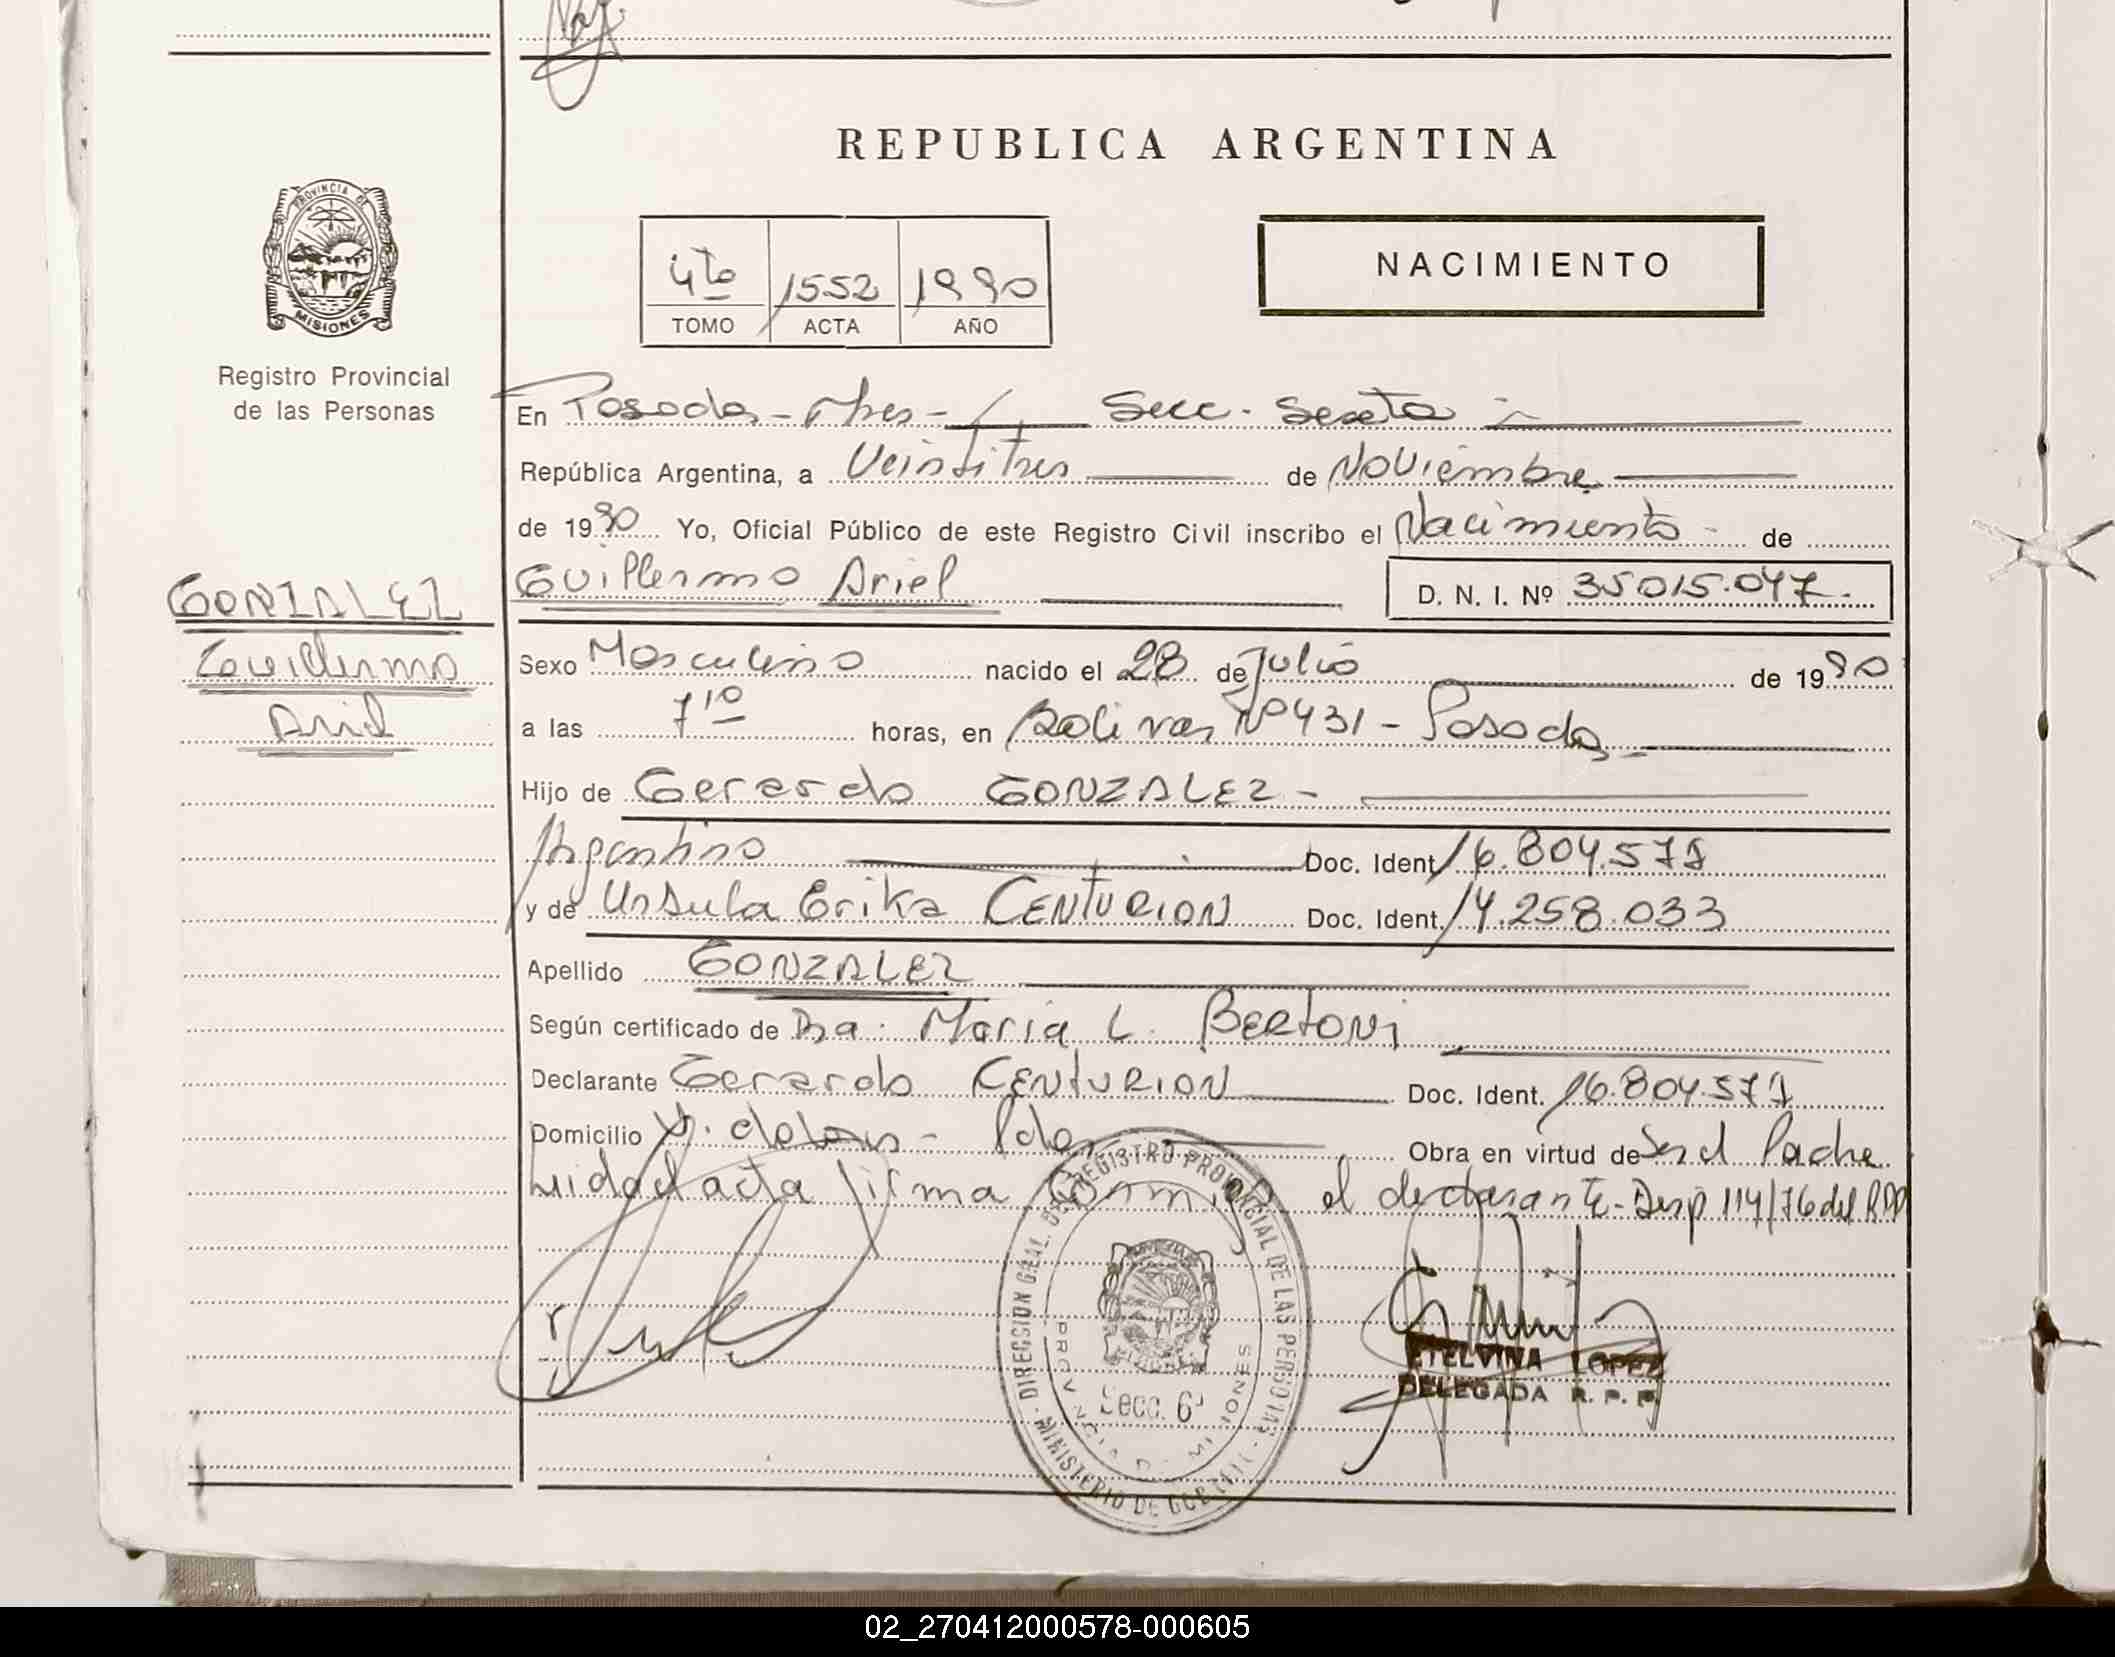 REPUBLICA ARGENTINA
PROVINCIA DE
MISIONES
Registro Provincial
de las Personas
4to 1552 1990
TOMO ACTA AÑO
NACIMIENTO
En Posadas - Mnes - Secc. Sexta
República Argentina, a Veintitres de Noviembre
de 1990 Yo, Oficial Público de este Registro Civil inscribo el Nacimiento de
Guillermo Ariel D. N. I. Nº 35015.047.
GONZALEZ
Guillermo
Ariel
Sexo Masculino nacido el 28 de Julio de 1990
a las 7 10 horas, en Bolivar Nº 431 - Posadas
Hijo de Gerardo GONZALEZ -
Argentino Doc. Ident. 16.804.571
y de Ursula Erika CENTURION Doc. Ident. 14.258.033
Apellido GONZALEZ
Según certificado de Dra. Maria L. BERTONI
Declarante Gerardo CENTURION Doc. Ident. 16.804.571
Domicilio - Pdas Obra en virtud de Ser el Padre
Leida el acta firma Conmigo el declarante - Disp 114/76 del RPP
DIRECCION GRAL. DEL REGISTRO PROVINCIAL DE LAS PERSONAS
MINISTERIO DE GOBIERNO
PROVINCIA DE MISIONES
Secc. 6ª
ETELVINA LOPEZ
DELEGADA R. P. P.
02_270412000578-000605